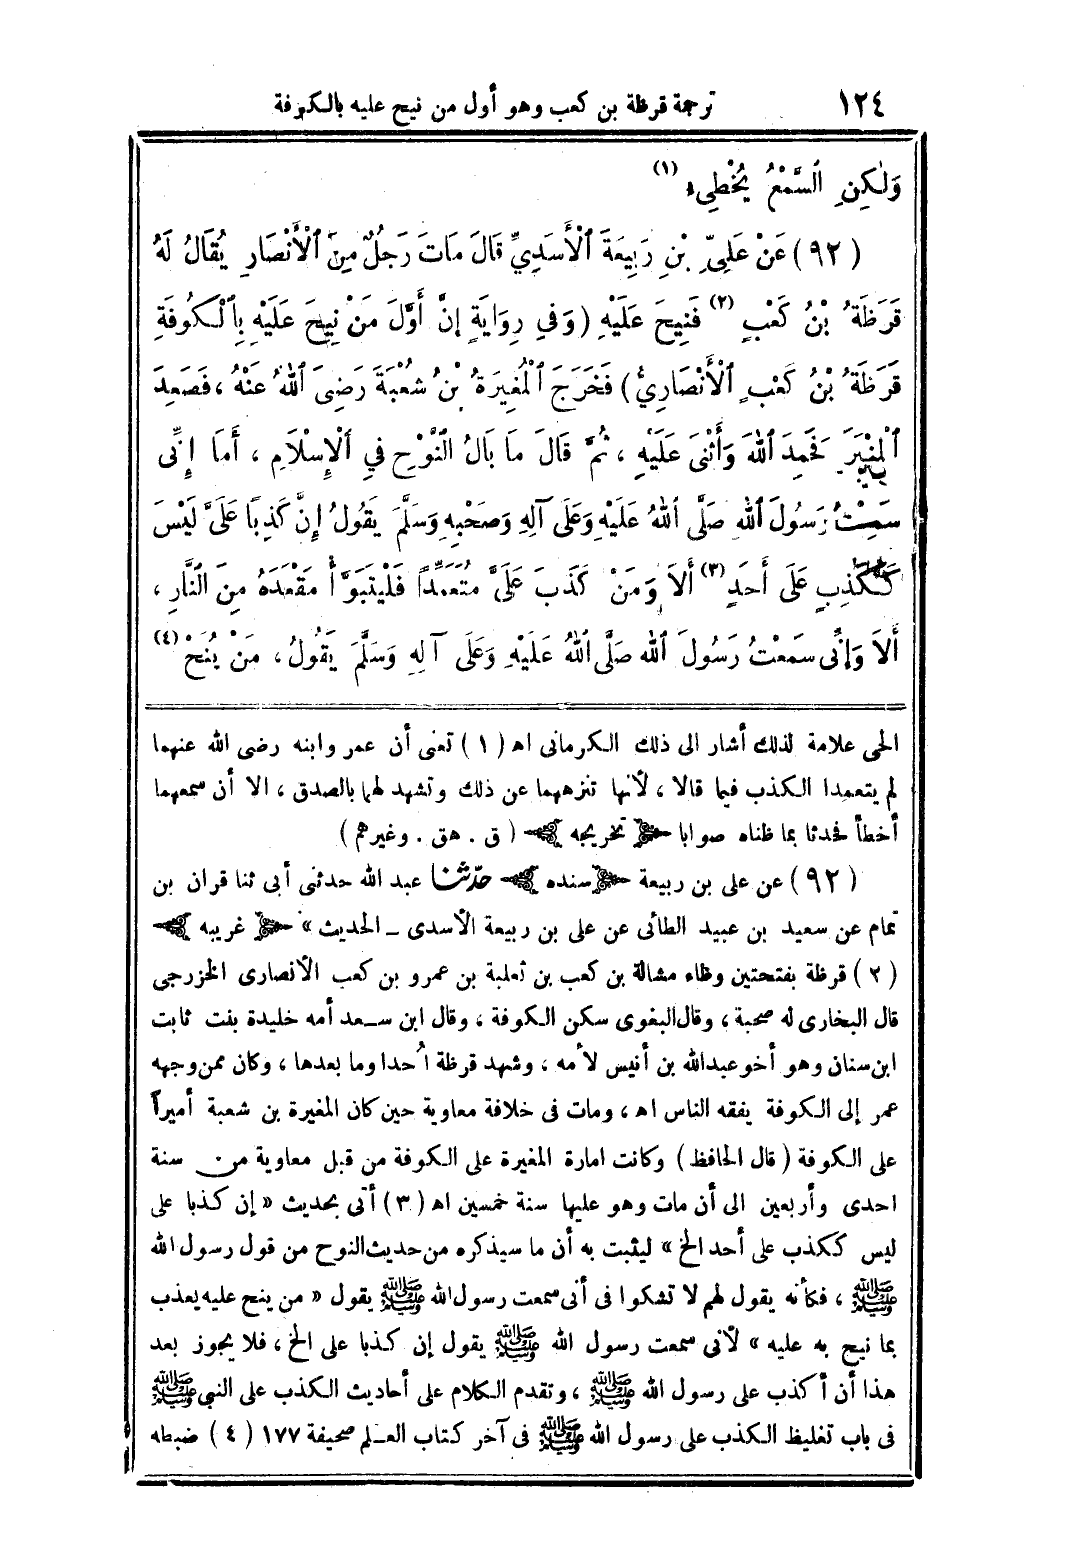 ١٢٤ ترجمة قرظة بن كعب وهو أول من نيح عليه بالكوفة
وَلٰكِنِ ٱلسَّمْعُ يُخْطِىءُ (١)
(٩٢) عَنْ عَلِىِّ بْنِ رَبِيعَةَ ٱلْأَسَدِىِّ قَالَ مَاتَ رَجُلٌ مِنَ ٱلْأَنْصَارِ يُقَالُ لَهُ
قَرَظَةُ بْنُ كَعْبٍ (٢) فَنِيحَ عَلَيْهِ (وَفِي رِوَايَةٍ إِنَّ أَوَّلَ مَنْ نِيحَ عَلَيْهِ بِٱلْكُوفَةِ
قَرَظَةُ بْنُ كَعْبٍ ٱلْأَنْصَارِيُّ) فَخَرَجَ ٱلْمُغِيرَةُ بْنُ شُعْبَةَ رَضِىَ ٱللهُ عَنْهُ ، فَصَعِدَ
ٱلْمِنْبَرَ فَحَمِدَ ٱللهَ وَأَثْنَى عَلَيْهِ ، ثُمَّ قَالَ مَا بَالُ ٱلنَّوْحِ فِي ٱلْإِسْلَامِ ، أَمَا إِنِّى
سَمِعْتُ رَسُولَ ٱللهِ صَلَّى ٱللهُ عَلَيْهِ وَعَلَى آلِهِ وَصَحْبِهِ وَسَلَّمَ يَقُولُ إِنَّ كَذِبًا عَلَىَّ لَيْسَ
كَكَذِبٍ عَلَى أَحَدٍ (٣) أَلاَ وَمَنْ كَذَبَ عَلَىَّ مُتَعَمِّدًا فَلْيَتَبَوَّأْ مَقْعَدَهُ مِنَ النَّارِ ،
أَلاَ وَإِنِّى سَمِعْتُ رَسُولَ ٱللهِ صَلَّى ٱللهُ عَلَيْهِ وَعَلَى آلِهِ وَسَلَّمَ يَقُولُ ، مَنْ يُنَحْ (٤)
الحى علامة لذلك أشار الى ذلك الكرمانى اه (١) تعنى أن عمر وابنه رضى الله عنهما
لم يتعمدا الكذب فيما قالا ، لأنها تنزههما عن ذلك وتشهد لهما بالصدق ، الا أن سمعهما
أخطأ فحدثا بما ظناه صوابا تخريجه (ق . هق . وغيرهم)
(٩٢) عن على بن ربيعة سنده حدّثنا عبد الله حدثنى أبى ثنا قران بن
تمام عن سعيد بن عبيد الطائى عن على بن ربيعة الأسدى ــ الحديث » غريبه
(٢) قرظة بفتحتين وظاء مشالة بن كعب بن ثعلبة بن عمرو بن كعب الأنصارى الخزرجى
قال البخارى له صحبة ، وقال البغوى سكن الكوفة ، وقال ابن سعد أمه خليدة بنت ثابت
ابن سنان وهو أخو عبدالله بن أنيس لأمه ، وشهد قرظة أحدا وما بعدها ، وكان ممن وجهه
عمر إلى الكوفة يفقه الناس اه ، ومات فى خلافة معاوية حين كان المغيرة بن شعبة أميراً
على الكوفة (قال الحافظ) وكانت امارة المغيرة على الكوفة من قبل معاوية من سنة
احدى وأربعين الى أن مات وهو عليها سنة خمسين اه (٣) أتى بحديث « إن كذبا على
ليس ككذب على أحد الخ » ليثبت به أن ما سيذكره من حديث النوح من قول رسول الله
ﷺ ، فكأنه يقول لهم لا تشكوا فى أنى سمعت رسول الله ﷺ يقول « من ينح عليه يعذب
بما نيح به عليه » لأنى سمعت رسول الله ﷺ يقول إن كذبا على الخ ، فلا يجوز بعد
هذا أن أكذب على رسول الله ﷺ ، وتقدم الكلام على أحاديث الكذب على النبى ﷺ
فى باب تغليظ الكذب على رسول الله ﷺ فى آخر كتاب العلم صحيفة ١٧٧ (٤) ضبطه